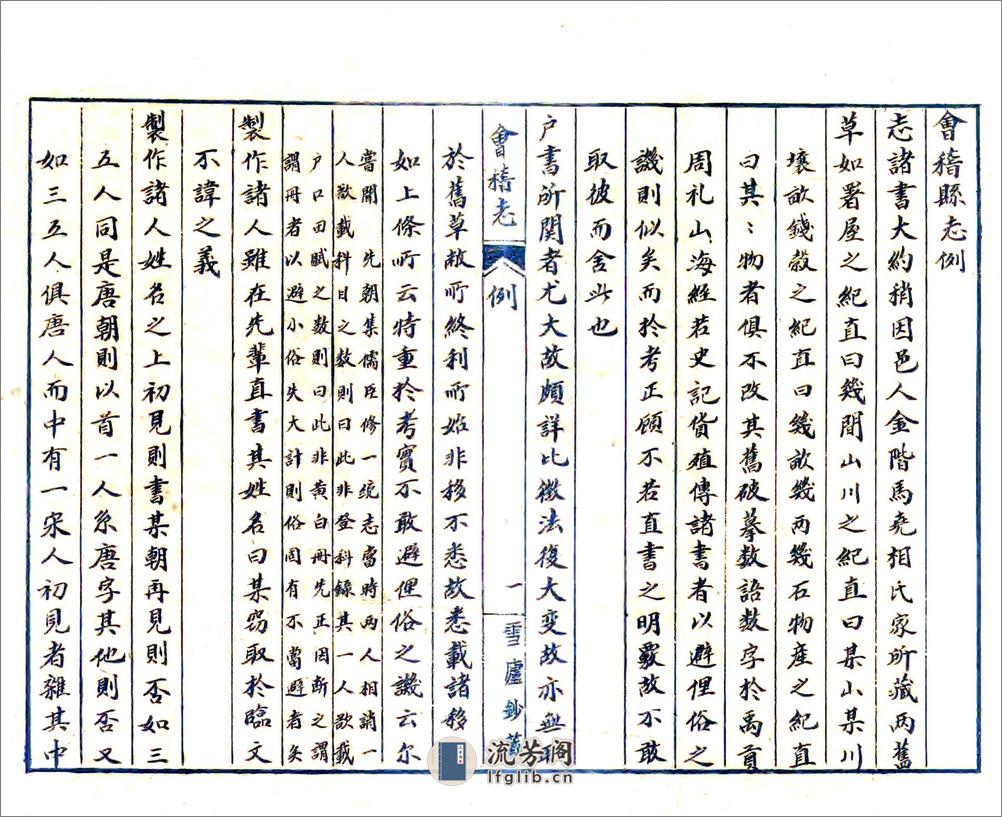 會稽縣志例
志諸書大約稍因邑人金階馬堯相氏家所藏两舊
草如署屋之紀直曰幾間山川之紀直曰某山某川
壤畝錢穀之紀直曰幾畝幾两幾石物産之紀直
曰其〻物者俱不改其舊破摹数語数字於禹貢
周礼山海經若史記貨殖傳諸書者以避俚俗之
譏則似矣而於考正顧不若直書之明覈故不敢
取彼而舍此也
户書所関者尤大故頗詳比徵法復大变故亦無
會稽志
例
一
雪廬鈔
於舊草故所終利所始非移不悉故悉載諸移
如上條所云特重於考實不敢避俚俗之譏云尔
嘗聞 先朝集儒臣修一統志當時两人相誚一
人欲載科目之数則曰此非登科録其一人欲載
户口田賦之数則曰此非黄白册先正因断之謂
謂册者以避小俗失大計則俗固有不當避者矣
製作諸人雖在先輩直書其姓名曰某窃取於臨文
不諱之義
製作諸人姓名之上初見則書某朝再見則否如三
五人同是唐朝則以首一人系唐字其他則否又
如三五人俱唐人而中有一宋人初見者雜其中
流芳阁
lfglib.cn